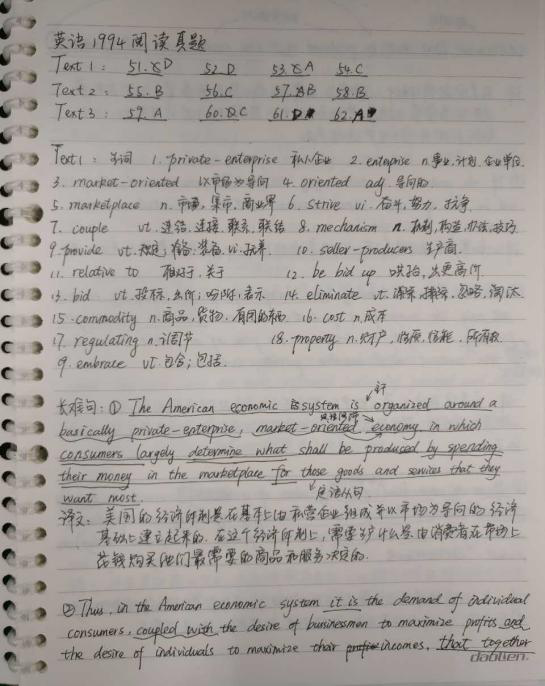 英语1994阅读真题
Text 1: 51. D 52. D 53. A 54. C
Text 2: 55. B 56. C 57. B 58. B
Text 3: 59. A 60. C 61. D 62. A
Text 1: 生词 1. private-enterprise 私人企业 2. enterprise n.事业,计划,企业单位
3. market-oriented 以市场为导向 4. oriented adj. 导向的
5. marketplace n. 市场,集市,商业界 6. strive vi. 奋斗,努力,抗争
7. couple vt. 连结,连接,联系,联结 8. mechanism n. 机制,构造,办法,技巧
9. provide vt. 规定,准备,装备,vi. 抚养 10. seller-producers 生产商
11. relative to 相对于,关于 12. be bid up 哄抬,出更高价
13. bid vt. 投标,出价;吩咐,表示 14. eliminate vt. 消除,排除,忽略,淘汰
15. commodity n.商品,货物,有用的东西 16. cost n.成本
17. regulating n.调节 18. property n. 财产,性能,所有权
9. embrace vt.包含;包括.
长难句: ① The American economic system is organized around a
basically private-enterprise, market-oriented economy in which
consumers largely determine what shall be produced by spending
their money in the marketplace for those goods and services that they
want most.
定语从句
译文: 美国的经济体制是在基本上由私营企业组成并以市场为导向的经济
基础上建立起来的.在这个经济体制上,需要生产什么是由消费者在市场上
花钱购买他们最需要的商品和服务决定的.
② Thus, in the American economic system it is the demand of individual
consumers, coupled with the desire of businessmen to maximize profits and
the desire of individuals to maximize their incomes, that together